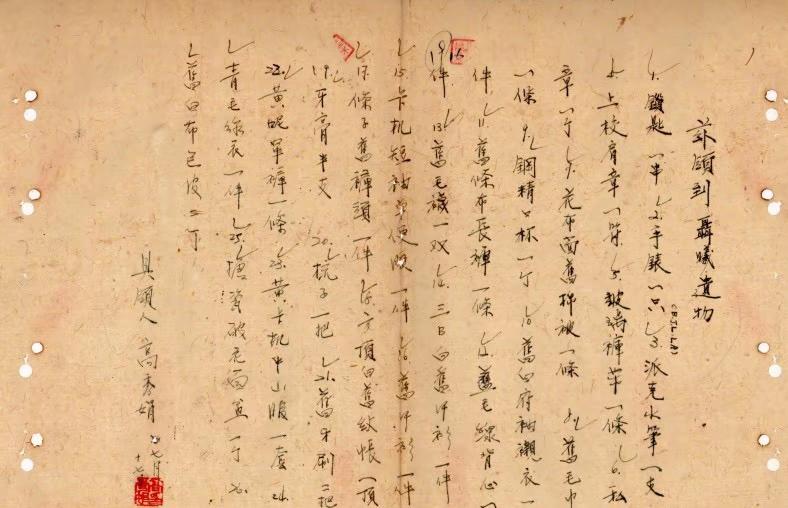 茲領到聶曦遺物
1. 鑰匙一串 2. 手錶一只 3. 派克水筆一支
4. 上校肩章一 5. 玻璃褲帶一條 6. 私
章一个 7. 花布面舊棉被一條 8. 舊毛巾
一條 9. 鋼精口杯一个 10. 舊白府袖襯衣一
件 11. 舊條布長褲一條 12. 舊毛線背心一
件 13. 舊毛襪一双 14. 三B白舊汗衫一件
15. 卡机短袖軍便服一件 16. 舊汗衫一件
17. 條子舊褲頭一件 18. 方頂白舊紋帳一頂
19. 牙膏半支 20. 梳子一把 21. 舊牙刷二把
22. 黃呢軍褲一條 23. 黃卡机中山服一套 24.
青毛線衣一件 25. 搪瓷破洗面盆一个 26.
舊白布包皮二个
具領人 高秀娟 七月
十七